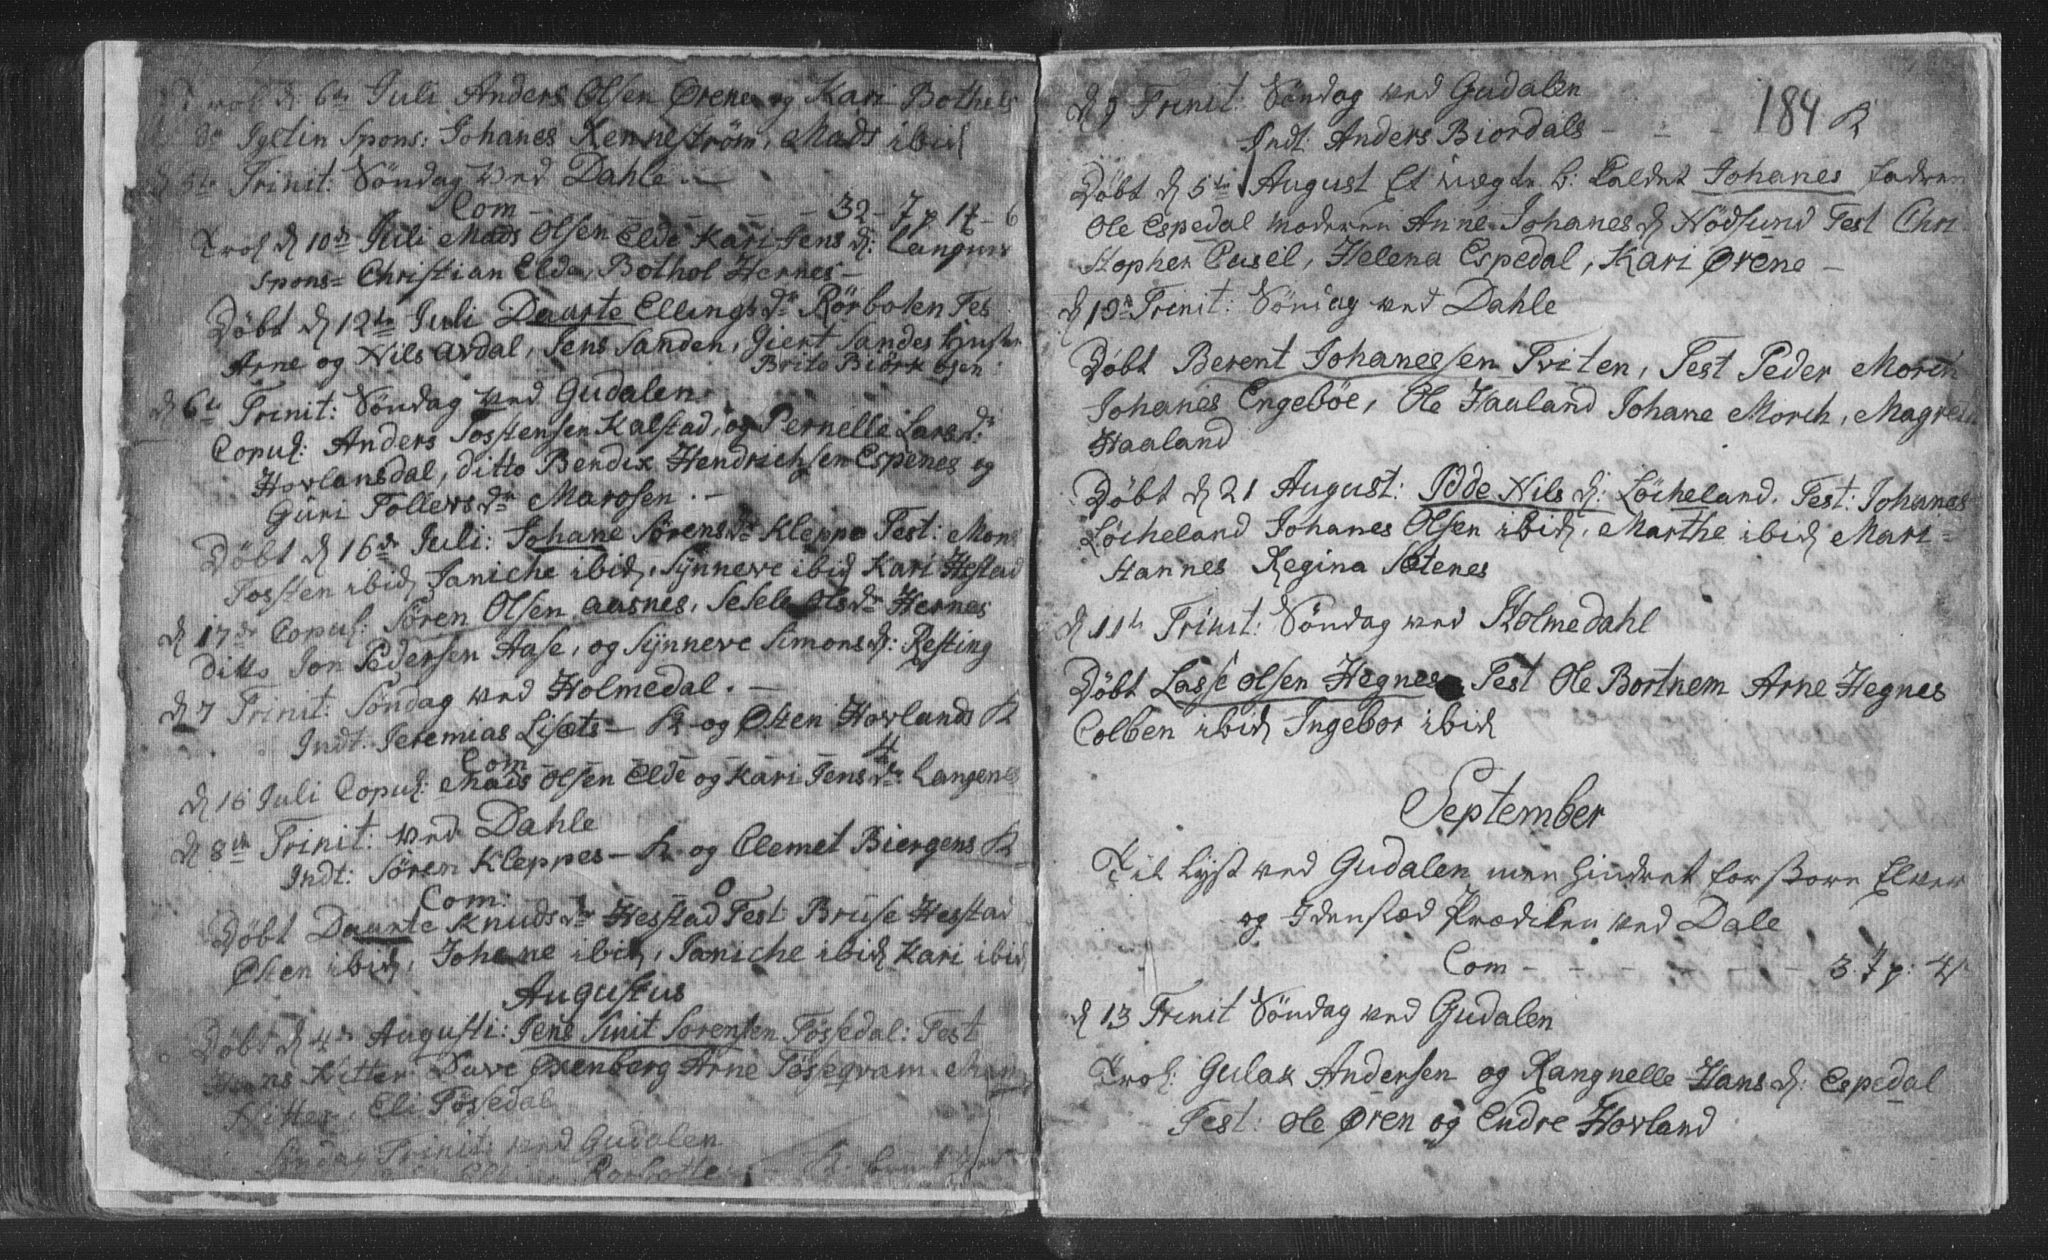 Trol: d: 6te Juli Anders Olsen Ørene og Kari Bothels
dr Igelin Spons: Johanes Kennestrøm, Mads ibid
d 5te Trinit: Søndag ved Dahle
Com - - - - - 32 - 7 p 17 - 6
Trol d 10de Juli Mads Olsen Elde Kari Jens d: Langenes
Spons= Christian Elde, Bothol Hernes -
Døbt d 12te Juli Daarte Ellings dr Rørboten Tes
Arne og Nils Avdal, Jens Sanden, Giert Sandes Hustr
Brito Biørkosen
d 6te Trinit: Søndag ved Gudalen
Copul: Anders Tostensen Kalstad, og Pernelle Lars d:
Hovlansdal, ditto Bendix Hendrichsen Espenes og
Guri Follers dr Marosen . -
Døbt d 16de Juli: Johane Sørens dr Kleppe Test: Mons
Tosten ibid Janiche ibid, Synneve ibid Kari Hestad
d 17de Copul: Søren Olsen Aasnes, Sesele Ols dr Hernes
Ditto Jon Pedersen Aase, og Synneve Simons d: Resting
d 7 Trinit: Søndag ved Holmedal . -
Indt: Jeremias Lisets - K - og Osten Hovlands K
Com - - - - - 4
d 16 Juli Copul: Mads Olsen Elde og Kari Jens dr Langenes
d 8de Trinit: ved Dahle
Indt: Søren Kleppes - K - og Clemet Biergens K
Com: 0
Døbt Daarte Knuds dr Hesstad Test Bruse Hesstad
Osten ibid, Johane ibid, Janiche ibid Kari ibid
Augustus
Døbt d 4de Augusti: Jens Smit Sorensen Fossedal: Test
Hans Ritter Dave Oxenberg Arne Soseqvam
Ritter, Eli Fossedal
Trinit: ved Gudalen
Rorbotte
184
d 9 Trinit: Søndag ved Gudalen
Indt: Anders Biordals - - - K
Døbt d 5te August Et ægte b: kaldet Johanes fadren
Ole Espedal moderen Anne Johanes d Nødsund Test Chri-
stopher Casel, Helena Espedal, Kari Ørene -
d 10de Trinit: Søndag ved Dahle
Døbt Berent Johanessen Tviten, Test Peder Morch
Johanes Engebøe, Ole Haaland Johane Morch, Magrete
Haaland
Døbt d 21 August: Odde Nils d: Løcheland. Test: Johanes
Løcheland Johanes Olsen ibid, Marthe ibid Mari-
Hannes Regina Setenes
d 11te Trinit: Søndag ved Holmedahl
Døbt Lasse Olsen Hegnes Test Ole Bortnem Arne Hegnes
Colben ibid Ingebor ibid
September
Til Lyst ved Gudalen men hindret for store Elver
og Idenstæd Prædiken ved Dale
Com - - - - - 3. 7 p: 4
d 13 Trinit Søndag ved Gudalen
Trol: Gulak Andersen og Rangnelle Hans d: Espedal
Test: Ole Øren og Endre Hovland